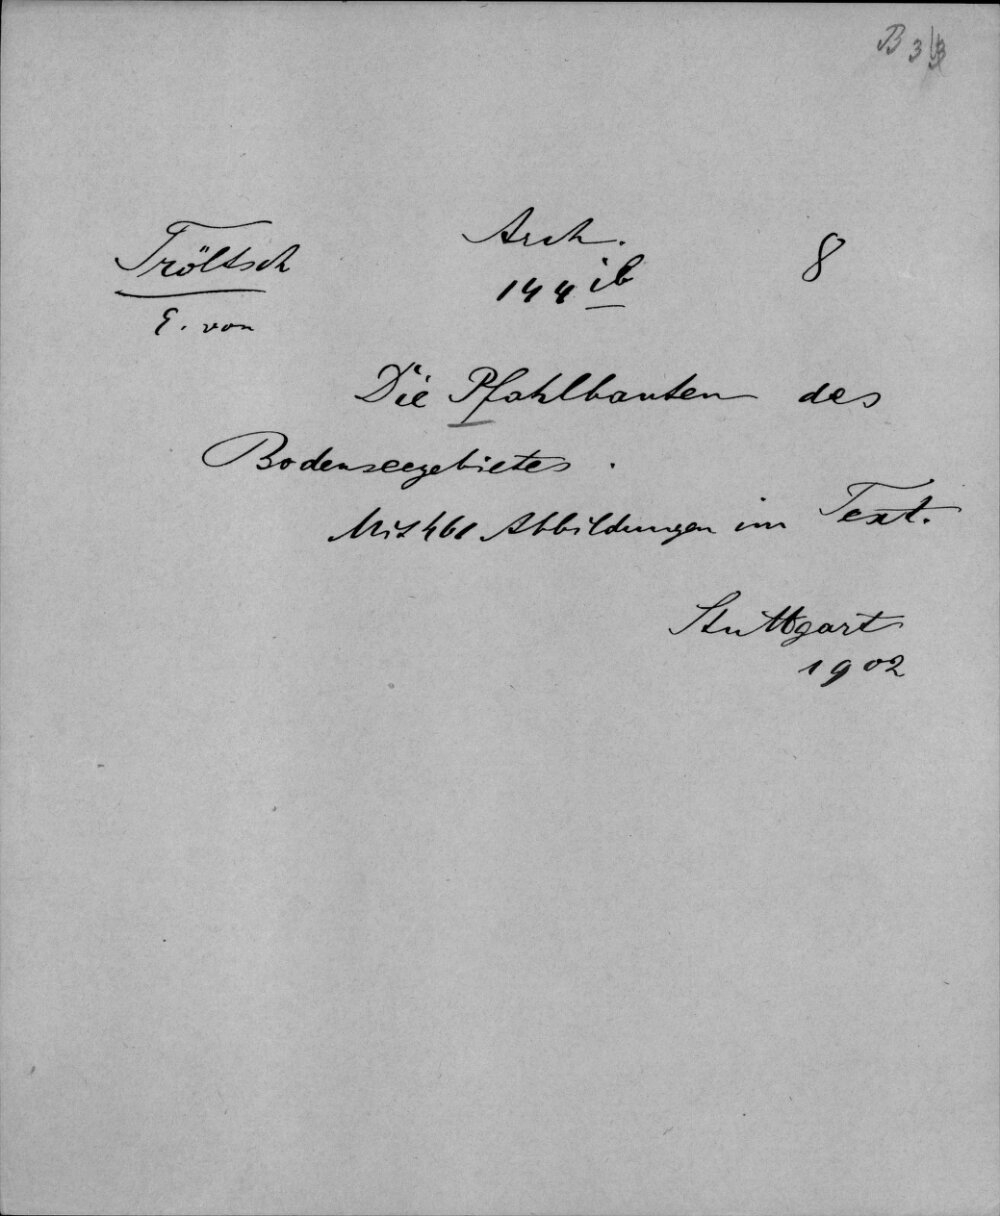 B 3
Tröltsch
E. von
Arch.
144 ib
8
Die Pfahlbauten des
Bodenseegebietes.
Mit 461 Abbildungen im Text.
Stuttgart
1902